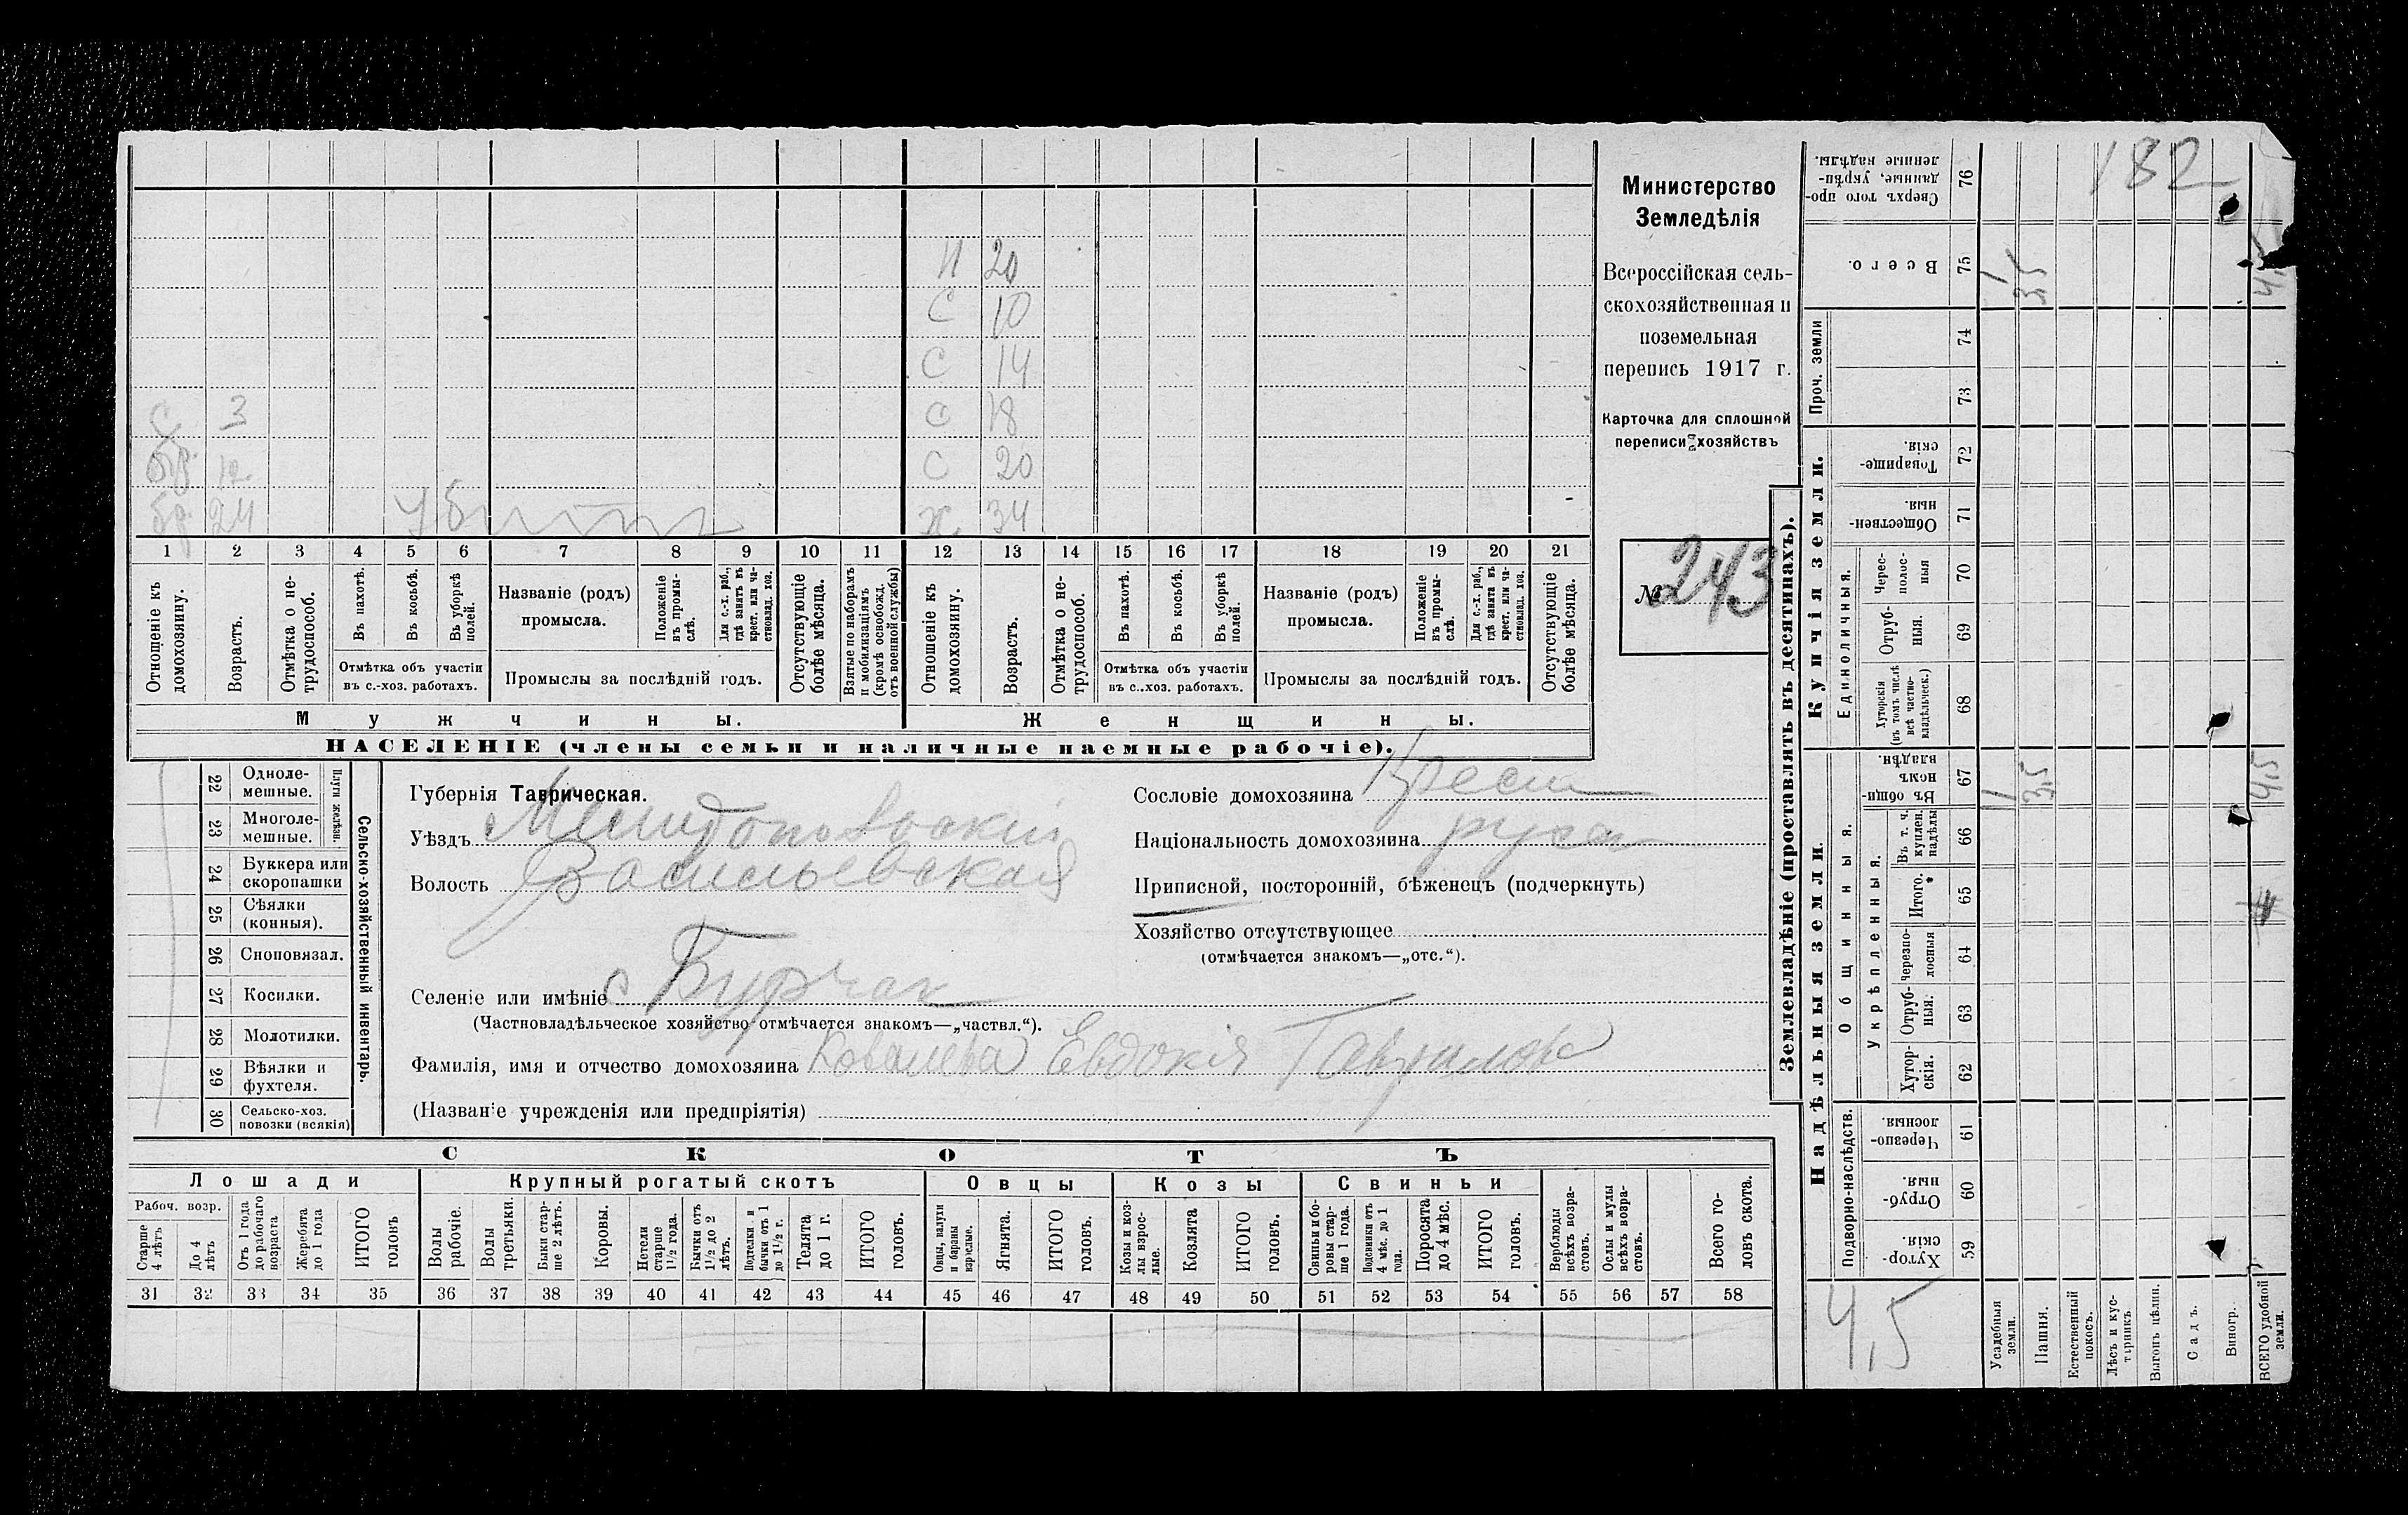 182
Министерство
Земледѣлія
Всероссійская сель-
скохозяйственная и
поземельная
перепись 1917 г.
Карточка для сплошной
переписи хозяйствъ
№ 243
Н 20
С 10
С 14
С 3 С 18
бр. 12 С 20
бр. 24 Ж. 34
1 2 3 4 5 6 7 8 9 10 11 12 13 14 15 16 17 18 19 20 21
Отношеніе къ домохозяину.
Возрастъ.
Отмѣтка о не-трудоспособ.
Въ пахотѣ.
Въ косьбѣ.
Въ уборкѣ полей.
Отмѣтка объ участіи
въ с.-хоз. работахъ.
Названіе (родъ)
промысла.
Положеніе въ промы-слѣ.
Для с.-х. раб., гдѣ занятъ въ крест. или ча-стновлад. хоз.
Промыслы за послѣдній годъ.
Отсутствующіе болѣе мѣсяца.
Взятые по наборамъ и мобилизаціямъ (кромѣ освобожд. отъ военной службы)
Отношеніе къ домохозяину.
Возрастъ.
Отмѣтка о не-трудоспособ.
Въ пахотѣ.
Въ косьбѣ.
Въ уборкѣ полей.
Отмѣтка объ участіи
въ с..хоз. работахъ.
Названіе (родъ)
промысла.
Положеніе въ промы-слѣ.
Для с.-х. раб., гдѣ занята въ крест. или ча-стновлад. хоз.
Промыслы за послѣдній годъ.
Отсутствующіе болѣе мѣсяца.
Мужчины.
Женщины.
НАСЕЛЕНІЕ (члены семьи и наличные наемные рабочіе).
Сельско-хозяйственный инвентарь.
Плуги желѣзн.
22 Одноле-мешные.
23 Многоле-мешные.
24 Буккера или скоропашки
25 Сѣялки (конныя).
26 Сноповязал.
27 Косилки.
28 Молотилки.
29 Вѣялки и фухтеля.
30 Сельско-хоз. повозки (всякія)
Губернія Таврическая.
Уѣздъ Мелитопольскій
Волость Васильевская
Селеніе или имѣніе с Бурчак
(Частновладѣльческое хозяйство отмѣчается знакомъ—„частвл.“).
Фамилія, имя и отчество домохозяина Ковалева Евдокія Гаврилова
(Названіе учрежденія или предпріятія)
Сословіе домохозяина Крест
Національность домохозяина русск
Приписной, посторонній, бѣженецъ (подчеркнуть)
Хозяйство отсутствующее
(отмѣчается знакомъ—„отс.“).
СКОТЪ
Лошади
Крупный рогатый скотъ
Овцы
Козы
Свиньи
Рабоч. возр.
Старше 4 лѣтъ
До 4 лѣтъ
Отъ 1 года до рабочаго возраста
Жеребята до 1 года
ИТОГО головъ
Волы рабочіе.
Волы третьяки.
Быки стар-ше 2 лѣтъ.
Коровы.
Нетели старше 1½ года.
Бычки отъ 1½ до 2 лѣтъ.
Подтелки и бычки отъ 1 до 1½ г.
Телята до 1 г.
ИТОГО головъ.
Овцы, валухи и бараны взрослые.
Ягнята.
ИТОГО головъ.
Козы и коз-лы взрос-лые.
Козлята
ИТОГО головъ.
Свиньи и бо-ровы стар-ше 1 года.
Подсвинки отъ 4 мѣс. до 1 года.
Поросята до 4 мѣс.
ИТОГО головъ.
Верблюды всѣхъ возра-стовъ.
Ослы и мулы всѣхъ возра-стовъ.
Всего го-ловъ скота.
31 32 33 34 35 36 37 38 39 40 41 42 43 44 45 46 47 48 49 50 51 52 53 54 55 56 57 58
Землевладѣніе (проставлять въ десятинахъ).
Надѣльныя земли.
Купчія земли.
Проч. земли
Подворно-наслѣдств.
Общинныя.
Укрѣпленныя.
Единоличныя.
Сверхъ того про-данные, укрѣп-ленные надѣлы. 76
Всего. 75 1 3,5 4,5
74
73
Товарище-скія. 72
Обществен-ныя 71
Черес-полос-ныя 70
Отруб-ныя. 69
Хуторскія (въ томъ числѣ всѣ частно-владѣльческ.) 68
Въ общи-номъ владѣн. 67 1 3,5 4,5
Въ т. ч. куплен. надѣлы 66
Итого. * 65
Черезпо-лосныя 64
Отруб-ныя. 63
Хутор-скія. 62
Черезпо-лосныя. 61
Отруб-ныя. 60
Хутор-скія. 59
4,5
Усадебныя земли.
Пашня.
Естественный покосъ.
Лѣсъ и кус-тарникъ
Выгонъ цѣлин.
Садъ.
Виногр.
ВСЕГО удобной земли.